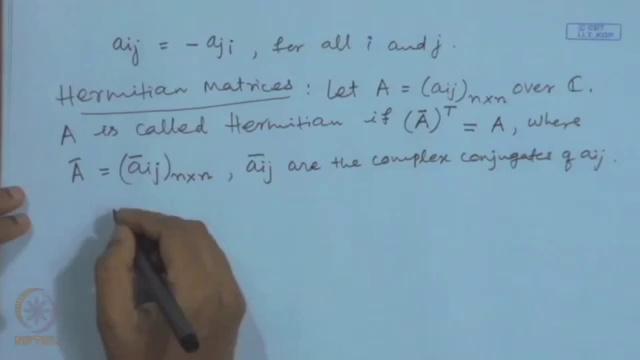 aij = - aji, for all i and j.
Hermitian Matrices : Let A = (aij)n×n over ℂ.
A is called Hermitian if (Ā)ᵀ = A, where
Ā = (āij)n×n, āij are the complex conjugates of aij.
© CET
I.I.T. KGP
NPTEL